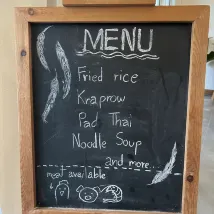 MENU
Fried rice
Kraprow
Pad Thai
Noodle Soup
and more...
meat available